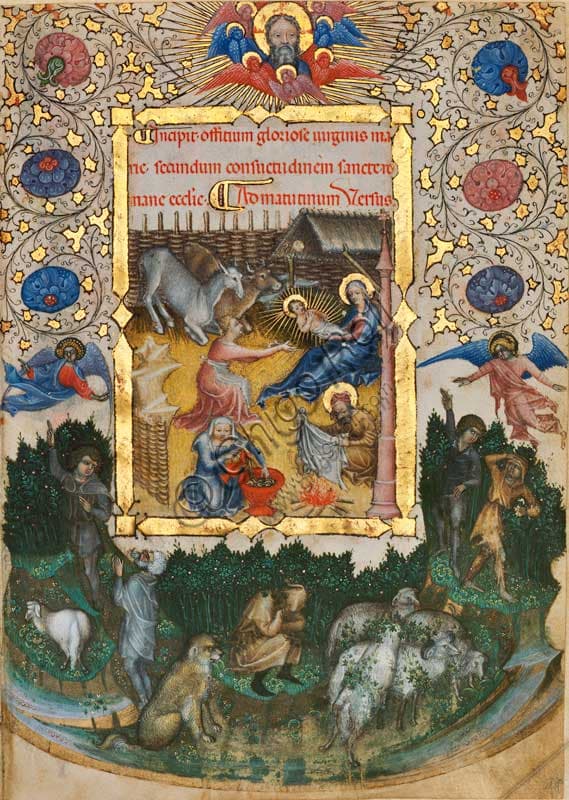 Incipit offitium gloriose uirginis ma
rie. secundum consuetudinem sancte ro
mane ecclie. Ad matutinum Versus